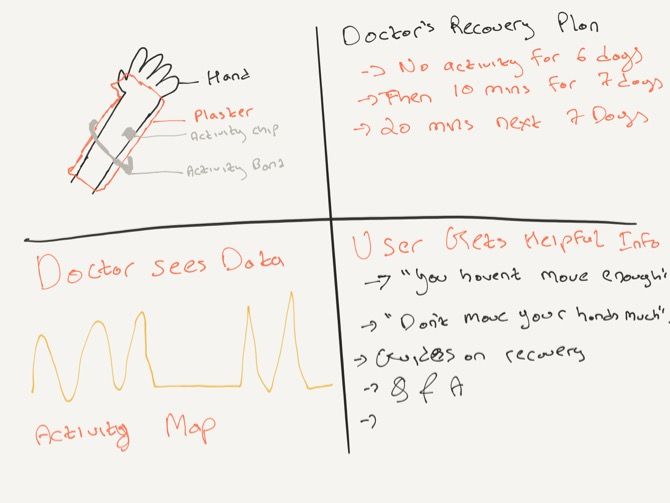 Hand
Plaster
Activity chip
Activity Band
Doctor's Recovery Plan
-> No activity for 6 days
-> Then 10 mins for 7 days
-> 20 mins next 7 Days
Doctor sees Data
Activity Map
User Gets Helpful Info
-> "You havent move enough"
-> "Don't move your hands much".
-> Guides on recovery
-> Q & A
->